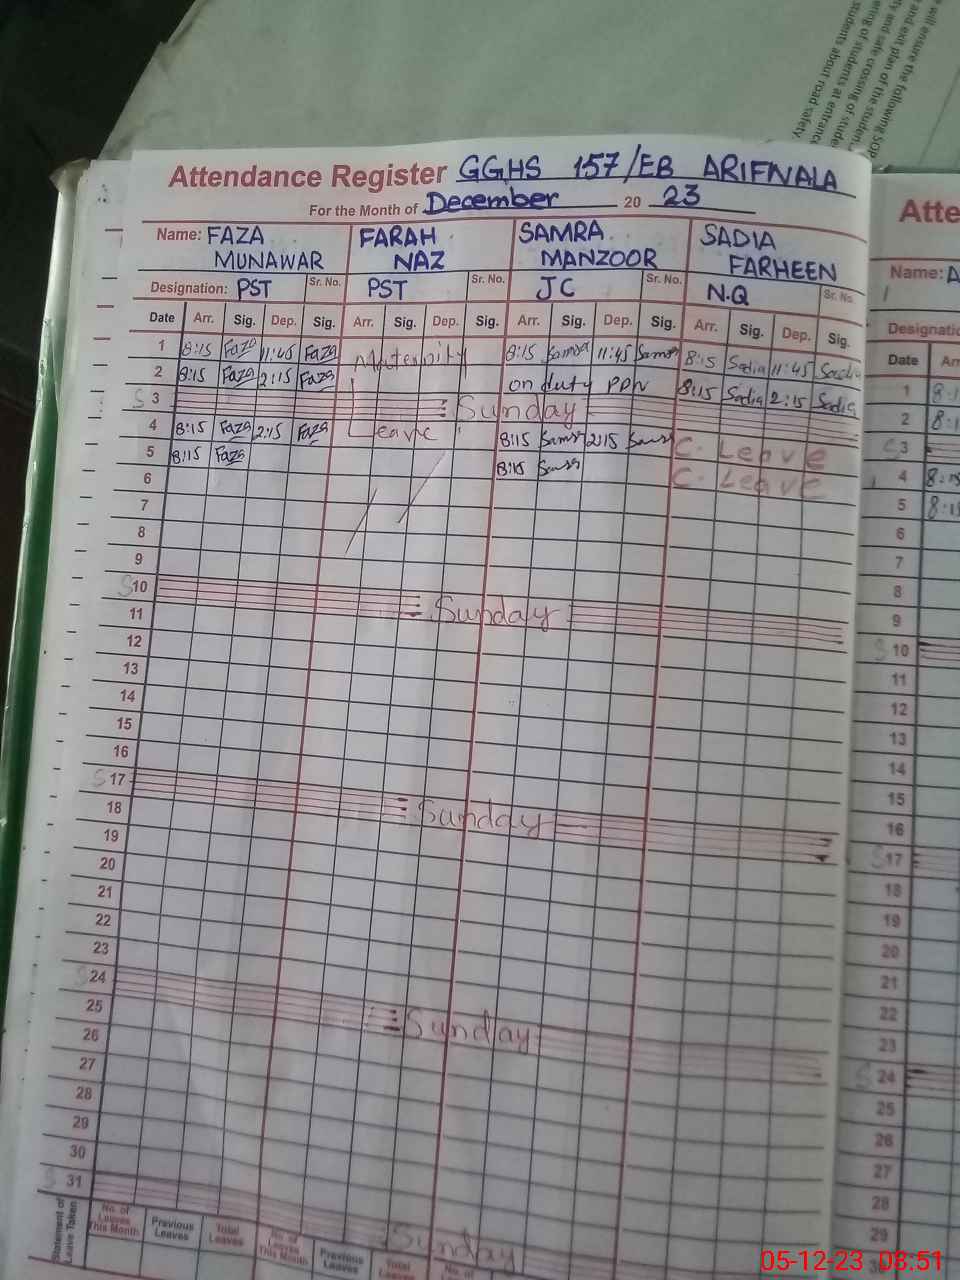 will ensure the following SOP
and exit plan of the studen
ty and safe crossing of stude
ering of students at entranc
students about road safety.
Attendance Register GGHS 157/EB ARIFWALA
For the Month of December 20 23
Name: FAZA MUNAWAR FARAH NAZ SAMRA MANZOOR SADIA FARHEEN
Designation: PST Sr. No. PST JC Sr. No. N.Q Sr. No.
Date Arr. Sig. Dep. Sig. Arr. Sig. Dep. Sig. Arr. Sig. Dep. Sig. Arr. Sig. Dep. Sig.
1 8:15 Faza 11:45 Faza Maternity 8:15 Samra 11:45 Samra 8:15 Sadia 11:45 Sadia
2 8:15 Faza 2:15 Faza on duty 8:15 Sadia 2:15 Sadia
S 3 Sunday
4 8:15 Faza 2:15 Faza Leave 8:15 Samra 2:15 Samra C. Leave
5 8:15 Faza 8:15 Samra C. Leave
6
7
8
9
S 10 Sunday
11
12
13
14
15
16
S 17 Sunday
18
19
20
21
22
23
S 24 Sunday
25
26
27
28
29
30
S 31 Sunday
Statement of Leave Taken
No. of Leaves This Month Previous Leaves Total Leaves No. of Leaves This Month Previous Leaves Total Leaves No. of
Atte
Name: A
Designatio
Date Arr
1 8:1
2 8:1
S 3
4 8:15
5 8:15
6
7
8
9
S 10
11
12
13
14
15
16
S 17
18
19
20
21
22
23
S 24
25
26
27
28
29
05-12-23 08:51